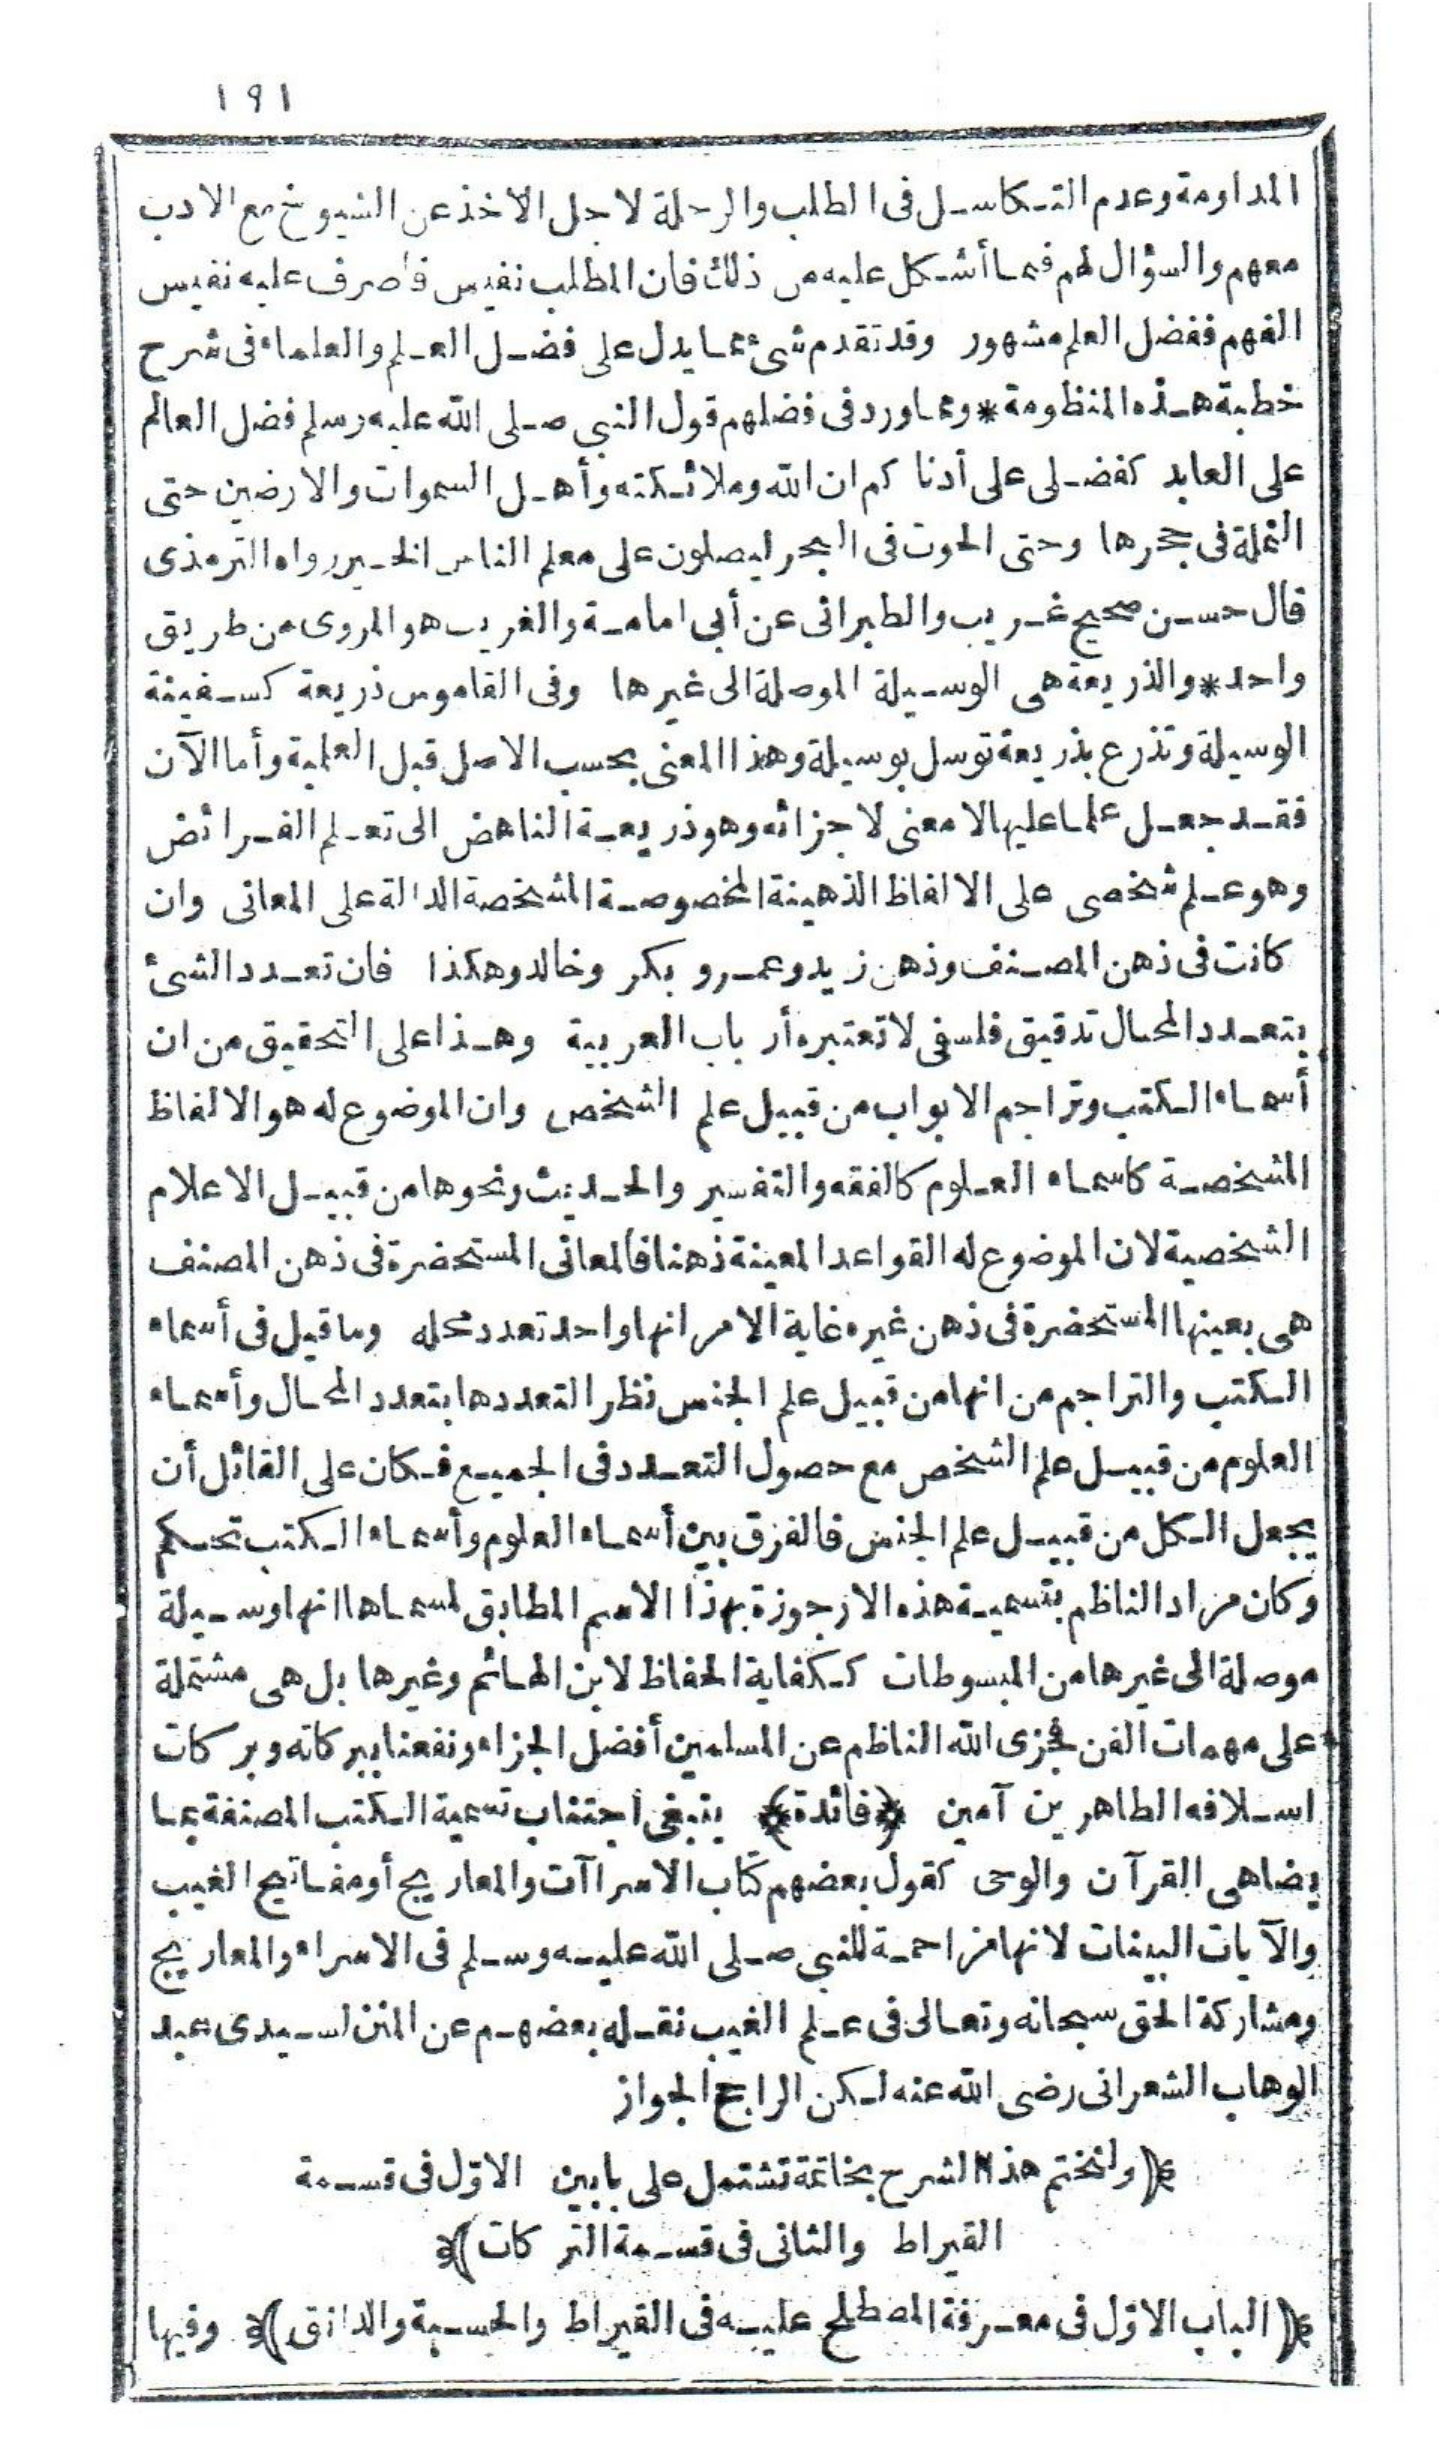 ١٩١
المداومة وعدم التكاسل فى الطلب والرحلة لاجل الاخذ عن الشيوخ مع الادب
معهم والسؤال لهم فيما أشكل عليه من ذلك فان المطلب نفيس فاصرف عليه نفيس
الفهم ففضل العلم مشهور وقد تقدم شئ مما يدل على فضل العلم والعلماء فى شرح
خطبة هذه المنظومة * ومما ورد فى فضلهم قول النبى صلى الله عليه وسلم فضل العالم
على العابد كفضلى على أدنا كم ان الله وملائكته وأهل السموات والارضين حتى
النملة فى جحرها وحتى الحوت فى البحر ليصلون على معلم الناس الخير رواه الترمذى
قال حسن صحيح غريب والطبرانى عن أبى امامة والغريب هو المروى من طريق
واحد * والذريعة هى الوسيلة الموصلة الى غيرها وفى القاموس ذريعة كسفينة
الوسيلة وتذرع بذريعة توسل بوسيلة وهذا المعنى بحسب الاصل قبل العلمية وأما الآن
فقد جعل علما عليها لا معنى لاجزائه وهو ذريعة الناهض الى تعلم الفرائض
وهو علم شخصى على الالفاظ الذهينة المخصوصة المشخصة الدالة على المعانى وان
كانت فى ذهن المصنف وذهن زيد وعمرو بكر وخالد وهكذا فان تعدد الشئ
بتعدد المحال تدقيق فلسفى لا تعتبره أرباب العربية وهذا على التحقيق من ان
أسماء الكتب وتراجم الابواب من قبيل علم الشخص وان الموضوع له هو الالفاظ
المشخصة كاسماء العلوم كالفقه والتفسير والحديث ونحوها من قبيل الاعلام
الشخصية لان الموضوع له القواعد المعينة ذهنا فالمعانى المستحضرة فى ذهن المصنف
هى بعينها المستحضرة فى ذهن غيره غاية الامر انها واحد تعدد محله وما قيل فى أسماء
الكتب والتراجم من انها من قبيل علم الجنس نظر التعددها بتعدد المحال وأسماء
العلوم من قبيل علم الشخص مع حصول التعدد فى الجميع فكان على القائل أن
يجعل الكل من قبيل علم الجنس فالفرق بين أسماء العلوم وأسماء الكتب تحكم
وكان مراد الناظم بتسمية هذه الارجوزة بهذا الاسم المطابق لمسماها انها وسيلة
موصلة الى غيرها من المبسوطات ككفاية الحفاظ لابن الهائم وغيرها بل هى مشتملة
على مهمات الفن فجزى الله الناظم عن المسلمين أفضل الجزاء ونفعنا ببركاته وبركات
اسلافه الطاهرين آمين ﴿فائدة﴾ ينبغى اجتناب تسمية الكتب المصنفة بما
يضاهى القرآن والوحى كقول بعضهم كتاب الاسراآت والمعاريج أو مفاتيح الغيب
والآيات البينات لانها مزاحمة للنبى صلى الله عليه وسلم فى الاسراء والمعاريج
ومشاركة الحق سبحانه وتعالى فى علم الغيب نقله بعضهم عن المنن لسيدى عبد
الوهاب الشعرانى رضى الله عنه لكن الراجح الجواز
﴿ولنختم هذا الشرح بخاتمة تشتمل على بابين الاوّل فى قسمة
القيراط والثانى فى قسمة التركات﴾
﴿الباب الاوّل فى معرفة المصطلح عليه فى القيراط والحسبة والدانق﴾ وفيها